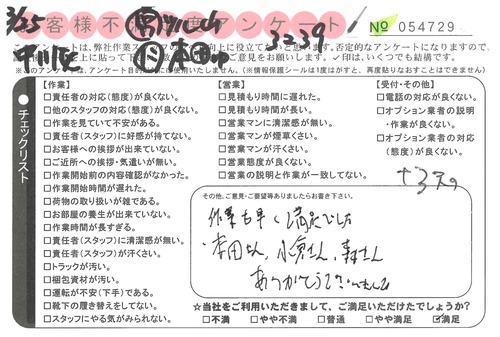 3/25
お客様不満度アンケート
3239
No 054729
このアンケートは、弊社作業スタッフの
向上に役立てたいと思います。否定的なアンケートになりますので、
上に貼って下
ご意見をお願いします。✓印は、いくつでも結構です。
※このアンケートは、アンケート目的以外には使用いたしません。(※情報保護シールは1度はがすと、再度貼りなおすことはできません)
チェックリスト
【作業】
□責任者の対応(態度)が良くない。
□他のスタッフの対応(態度)が良くない。
□作業を見ていて不安がある。
□責任者(スタッフ)に好感が持てない。
□お客様への挨拶が出来ていない。
□ご近所への挨拶・気遣いが無い。
□作業開始前の内容確認がなかった。
□作業開始時間が遅れた。
□荷物の取り扱いが雑である。
□お部屋の養生が出来ていない。
□作業時間が長すぎる。
□責任者(スタッフ)に清潔感が無い。
□責任者(スタッフ)が汗くさい。
□トラックが汚い。
□梱包資材が汚い。
□運転が不安(下手)である。
□靴下の履き替えをしてない。
□スタッフにやる気がみられない。
【営業】
□見積もり時間に遅れた。
□見積もり時間が長い。
□営業マンに清潔感が無い。
□営業マンが煙草くさい。
□営業マンが汗くさい。
□営業態度が良くない。
□営業の説明と作業が一致してない。
【受付・その他】
□電話の対応が良くない。
□オプション業者の説明
・作業が良くない。
□オプション業者の対応
(態度)が良くない。
その他、ご意見・ご要望等ありましたらお書き下さい。
作業も早く満足でした
・本田さん、小倉さん、森さん
ありがとうございました
☆当社をご利用いただきまして、ご満足いただけたでしょうか?
□不満 □やや不満 □普通 □やや満足 ☑満足